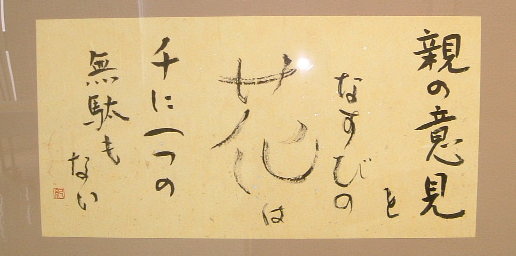 親の意見と
なすびの
花は
千に一つの
無駄も
ない